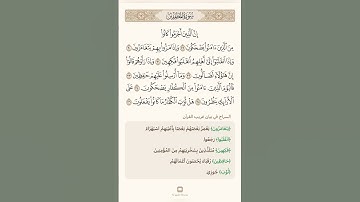 سُورَةُ المُطَفِّفِينَ
إِنَّ ٱلَّذِينَ أَجۡرَمُواْ كَانُواْ
مِنَ ٱلَّذِينَ ءَامَنُواْ يَضۡحَكُونَ ٢٩ وَإِذَا مَرُّواْ بِهِمۡ يَتَغَامَزُونَ ٣٠
وَإِذَا ٱنقَلَبُوٓاْ إِلَىٰٓ أَهۡلِهِمُ ٱنقَلَبُواْ فَكِهِينَ ٣١ وَإِذَا رَأَوۡهُمۡ قَالُوٓاْ
إِنَّ هَٰٓؤُلَآءِ لَضَآلُّونَ ٣٢ وَمَآ أُرۡسِلُواْ عَلَيۡهِمۡ حَٰفِظِينَ ٣٣
فَٱلۡيَوۡمَ ٱلَّذِينَ ءَامَنُواْ مِنَ ٱلۡكُفَّارِ يَضۡحَكُونَ ٣٤ عَلَى
ٱلۡأَرَآئِكِ يَنظُرُونَ ٣٥ هَلۡ ثُوِّبَ ٱلۡكُفَّارُ مَا كَانُواْ يَفۡعَلُونَ ٣٦
السراج في بيان غريب القرآن
﴿يَتَغَامَزُونَ﴾ يَغْمِزُ بَعْضُهُمْ بَعْضًا بِأَعْيُنِهِمُ اسْتِهْزَاءً.
﴿انْقَلَبُوا﴾ رَجَعُوا.
﴿فَكِهِينَ﴾ مُتَلَذِّذِينَ بِسُخْرِيَتِهِمْ مِنَ المُؤْمِنِينَ.
﴿حَافِظِينَ﴾ رُقَبَاءَ يُحْصُونَ أَعْمَالَهُمْ.
﴿ثُوِّبَ﴾ جُوزِيَ.